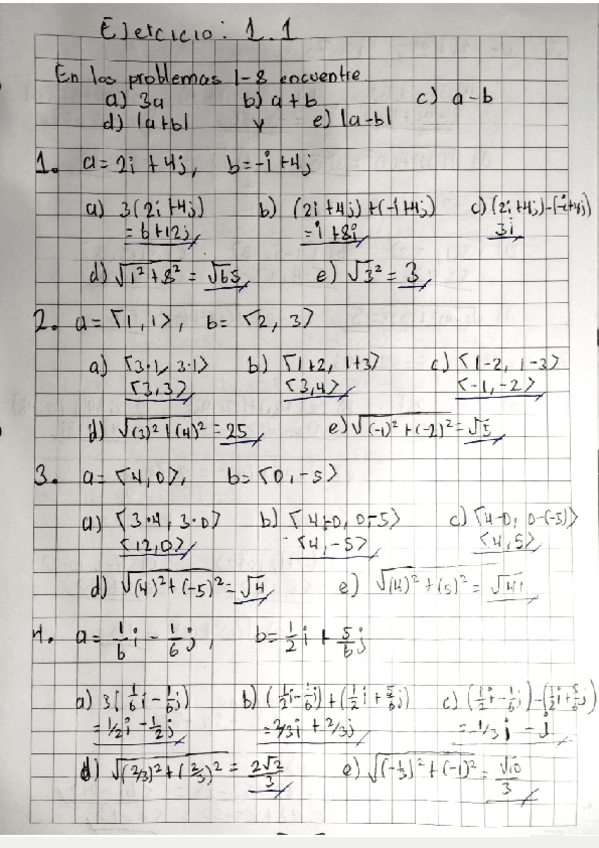 Ejercicio: 1.1
En los problemas 1-8 encuentre
a) 3a b) a+b c) a-b
d) |a+b| y e) |a-b|
1. a= 2i + 4j, b=-i+4j
a) 3(2i+4j) b) (2i+4j)+(-i+4j) c) (2i+4j)-(-i+4j)
=6+12j =i+8j 3i
d) √1²+8² = √65 e) √3² = 3
2. a= ⟨1,1⟩, b= ⟨2, 3⟩
a) ⟨3·1, 3·1⟩ b) ⟨1+2, 1+3⟩ c) ⟨1-2, 1-3⟩
⟨3,3⟩ ⟨3,4⟩ ⟨-1,-2⟩
d) √(3)²+(4)² = 25 e) √(-1)²+(-2)² = √5
3. a= ⟨4,0⟩, b= ⟨0,-5⟩
a) ⟨3·4, 3·0⟩ b) ⟨4+0, 0-5⟩ c) ⟨4-0, 0-(-5)⟩
⟨12,0⟩ ⟨4,-5⟩ ⟨4,5⟩
d) √(4)²+(-5)² = √4 e) √(4)²+(5)² = √41
4. a= 1/6 i - 1/6 j, b= 1/2 i + 5/6 j
a) 3(1/6 i - 1/6 j) b) (1/2 i - 1/6 j)+(1/2 i + 5/6 j) c) (1/2 i - 1/6 j)-(1/2 i + 5/6 j)
=1/2 i - 1/2 j = 2/3 i + 2/3 j =-1/3 j - j
d) √(2/3)²+(2/3)² = 2√2/3 e) √(-1/3)²+(-1)² = √10/3